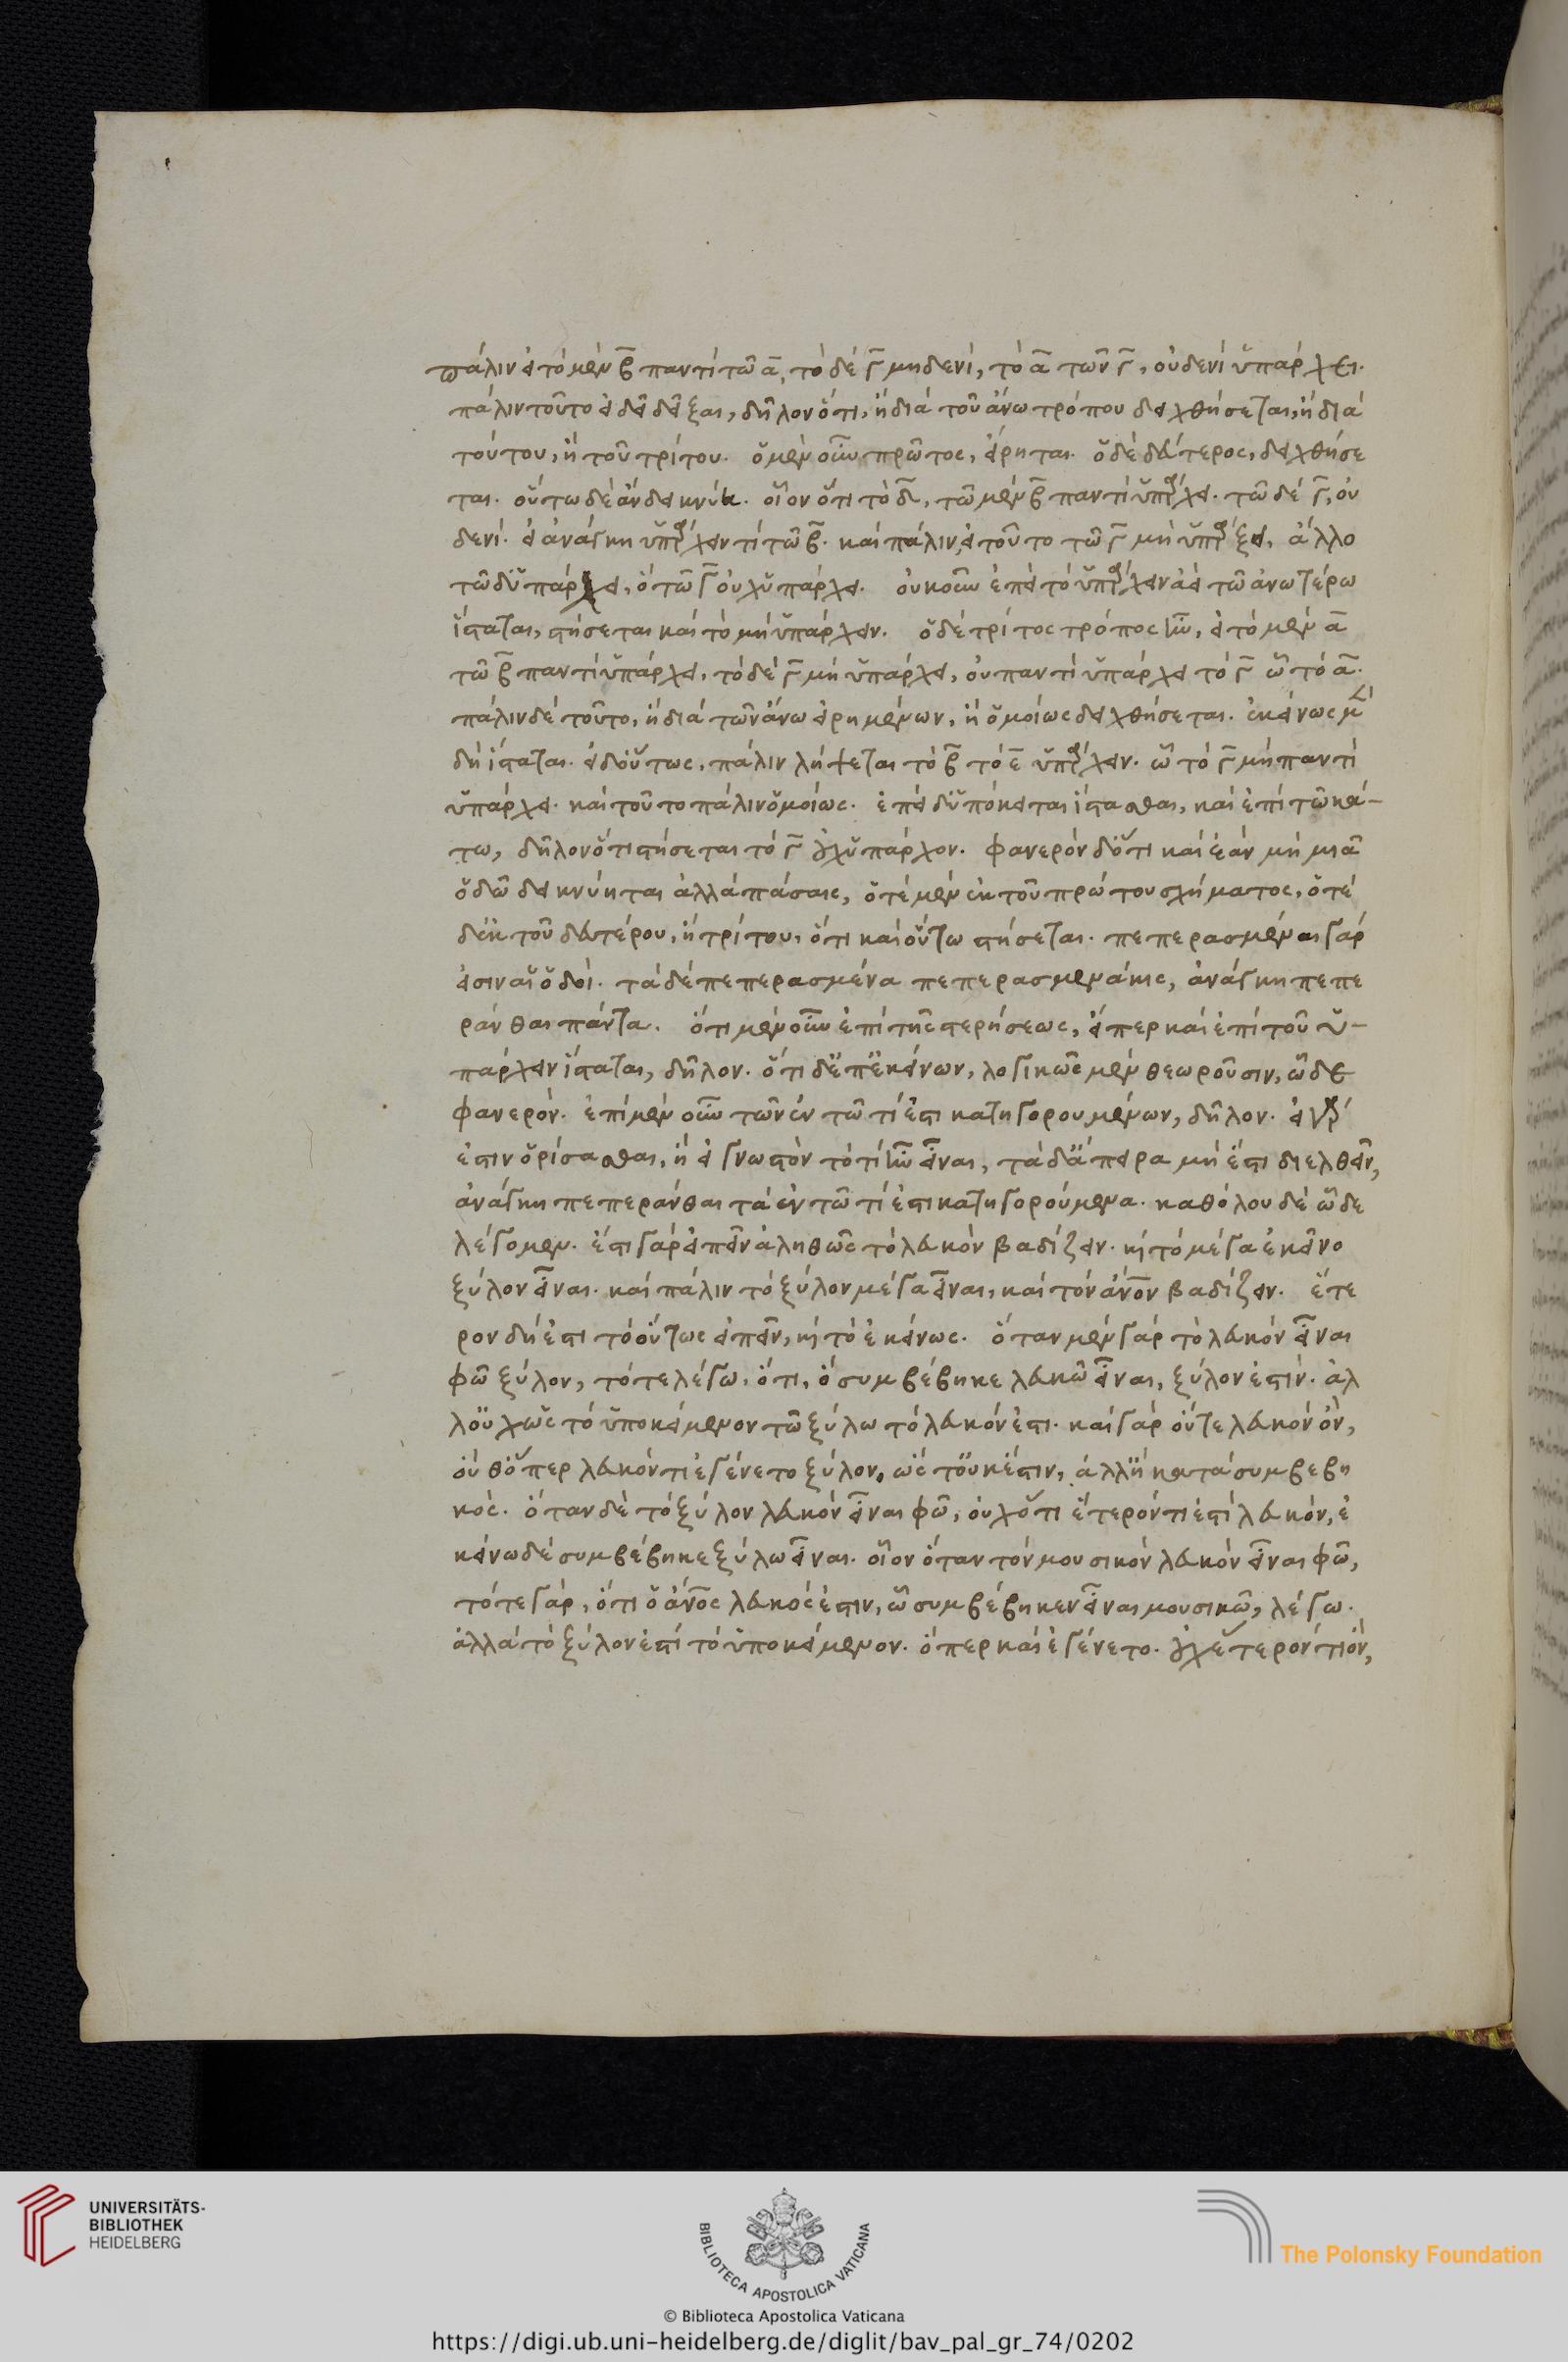 πάλιν εἰ τὸ μὲν β̅ παντὶ τῶ α̅, τὸ δὲ γ̅ μηδενὶ, τὸ α̅ τῶν γ̅, οὐδενὶ ὑπάρχει.
πάλιν τοῦτο εἰ δεῖ δεῖξαι, δῆλον ὅτι, ἢ διὰ τοῦ ἄνω τρόπου δειχθήσεται, ἢ διὰ
τούτου, ἢ τοῦ τρίτου. ὁ μὲν οὖν πρῶτος, εἴρηται. ὁ δὲ δεύτερος, δειχθήσε
ται. οὕτω δὲ ἂν δεικνύει. οἷον ὅτι τὸ δ̅, τῶ μὲν β̅ παντὶ ὑπάρχει. τῶ δὲ γ̅, οὐ
δενί. εἰ ἀνάγκη ὑπάρχειν τὶ τῶ β̅. καὶ πάλιν, εἰ τοῦτο τῶ γ̅ μὴ ὑπάρξει, ἄλλο
τῶ δ ὑπάρχει, ὃ τῶ γ̅ οὐχ ὑπάρχει. οὐκοῦν ἐπεὶ τὸ ὑπάρχειν ἀεὶ τῶ ἀνωτέρω
ἵσταται, στήσεται καὶ τὸ μὴ ὑπάρχειν. ὁ δὲ τρίτος τρόπος ἦν, εἰ τὸ μὲν α̅
τῶ β̅ παντὶ ὑπάρχει, τὸ δὲ γ̅ μὴ ὑπάρχει, οὐ παντὶ ὑπάρχει τὸ γ̅ ὧ τὸ α̅.
πάλιν δὲ τοῦτο, ἢ διὰ τῶν ἄνω εἰρημένων, ἢ ὁμοίως δειχθήσεται. ἐκείνως μὲν
δὴ ἵσταται. εἰ δ' οὕτως, πάλιν λήψεται τὸ β̅ τὸ ε̅ ὑπάρχειν. ὧ τὸ γ̅ μὴ παντὶ
ὑπάρχει. καὶ τοῦτο πάλιν ὁμοίως. ἐπεὶ δ' ὑπόκειται ἵστασθαι, καὶ ἐπὶ τῶ κά-
τω, δῆλον ὅτι στήσεται τὸ γ̅ οὐχ ὑπάρχον. φανερὸν δ' ὅτι καὶ ἐὰν μὴ μιᾶ
ὁδῶ δεικνύηται ἀλλὰ πάσαις, ὁτὲ μὲν ἐκ τοῦ πρώτου σχήματος, ὁτὲ
δ' ἐκ τοῦ δευτέρου, ἢ τρίτου, ὅτι καὶ οὕτω στήσεται. πεπερασμέναι γάρ
εἰσιν αἱ ὁδοί. τὰ δὲ πεπερασμένα πεπερασμενάκις, ἀνάγκη πεπε
ράνθαι πάντα. ὅτι μὲν οὖν ἐπὶ τῆς στερήσεως, εἴπερ καὶ ἐπὶ τοῦ ὑ-
πάρχειν ἵσταται, δῆλον. ὅτι δ' ἐπ' ἐκείνων, λογικῶς μὲν θεωροῦσιν, ὧδε
φανερόν. ἐπὶ μὲν οὖν τῶν ἐν τῶ τί ἐστι κατηγορουμένων, δῆλον. εἰ γὰρ
ἐστιν ὁρίσασθαι, ἢ εἰ γνωστὸν τὸ τί ἦν εἶναι, τὰ δ' ἄπειρα μὴ ἔστι διελθεῖν,
ἀνάγκη πεπεράνθαι τὰ ἐν τῶ τί ἐστι κατηγορούμενα. καθόλου δὲ ὧδε
λέγομεν. ἔστι γὰρ εἰπεῖν ἀληθῶς τὸ λευκὸν βαδίζειν. κỳ τὸ μέγα ἐκεῖνο
ξύλον εἶναι. καὶ πάλιν τὸ ξύλον μέγα εἶναι, καὶ τὸν ἄν̅ον βαδίζειν. ἕτε
ρον δή ἐστι τὸ οὕτως εἰπεῖν, κỳ τὸ ἐκείνως. ὅταν μὲν γὰρ τὸ λευκὸν εἶναι
φῶ ξύλον, τότε λέγω, ὅτι, ὃ συμβέβηκε λευκῶ εἶναι, ξύλον ἐστίν. ἀλ
λ' οὐχ ὡς τὸ ὑποκείμενον τῶ ξύλω τὸ λευκόν ἐστι. καὶ γὰρ οὔτε λευκὸν ὂν,
οὔθ' ὅπερ λευκόν τι ἐγένετο ξύλον, ὥστ' οὐκ ἔστιν, ἀλλ' ἢ κατὰ συμβεβη
κός. ὅταν δὲ τὸ ξύλον λευκὸν εἶναι φῶ, οὐχ ὅτι ἕτερόν τι ἐστὶ λευκόν, ἐ
κείνω δὲ συμβέβηκε ξύλω εἶναι. οἷον ὅταν τὸν μουσικὸν λευκὸν εἶναι φῶ,
τότε γὰρ, ὅτι ὁ ἄν̅ος λευκός ἐστιν, ὧ συμβέβηκεν εἶναι μουσικῶ, λέγω.
ἀλλὰ τὸ ξύλον ἐστὶ τὸ ὑποκείμενον. ὅπερ καὶ ἐγένετο. οὐχ ἕτερόν τι ὂν,
UNIVERSITÄTS-
BIBLIOTHEK
HEIDELBERG
BIBLIOTECA APOSTOLICA VATICANA
The Polonsky Foundation
© Biblioteca Apostolica Vaticana
https://digi.ub.uni-heidelberg.de/diglit/bav_pal_gr_74/0202